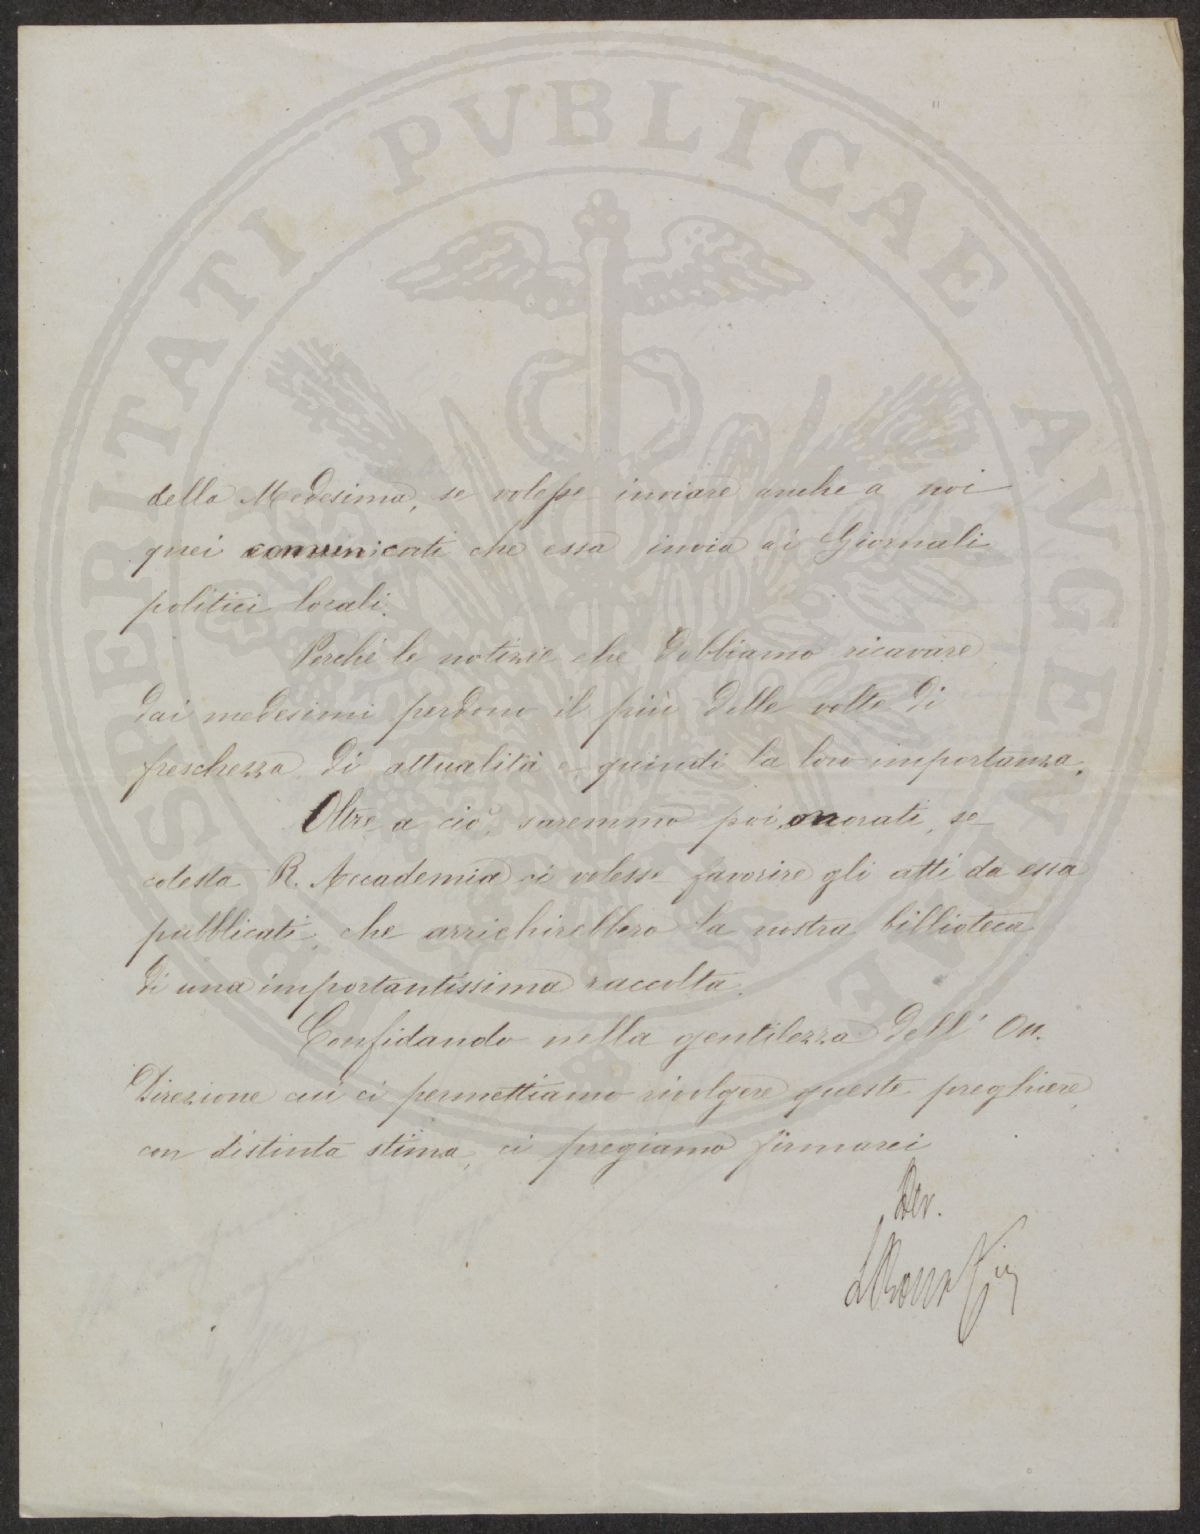 della Medesima, se volesse inviare anche a noi
quei comunicati che essa invia ai Giornali
politici locali.
Perchè le notizie che dobbiamo ricavare
dai medesimi perdono il più delle volte di
freschezza, di attualità e quindi la loro importanza.
Oltre a ciò, saremmo poi onorati, se
cotesta R. Accademia ci volesse favorire gli atti da essa
pubblicati, che arrichirebbero la nostra biblioteca
di una importantissima raccolta.
Confidando nella gentilezza dell' On.
Direzione cui ci permettiamo rivolgere queste preghiere,
con distinta stima, ci pregiamo firmarci
Dev.
PROSPERITATI PVBLICAE AVGENDAE